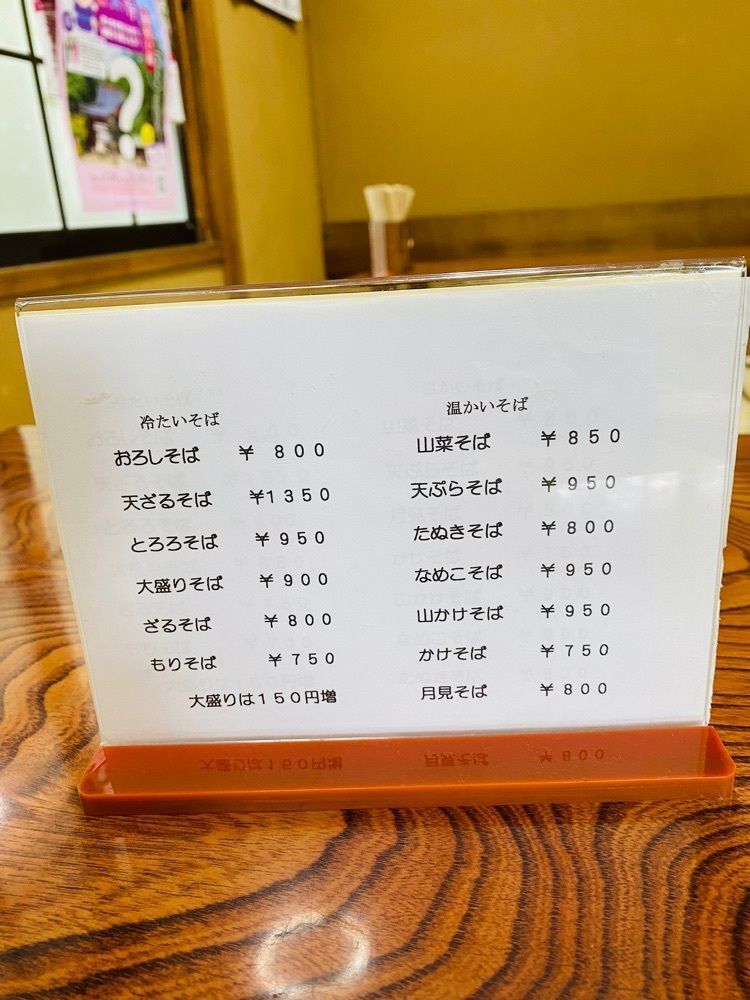 冷たいそば
おろしそば ￥ ８００
天ざるそば ￥１３５０
とろろそば ￥９５０
大盛りそば ￥９００
ざるそば ￥８００
もりそば ￥７５０
大盛りは１５０円増
温かいそば
山菜そば ￥８５０
天ぷらそば ￥９５０
たぬきそば ￥８００
なめこそば ￥９５０
山かけそば ￥９５０
かけそば ￥７５０
月見そば ￥８００
?